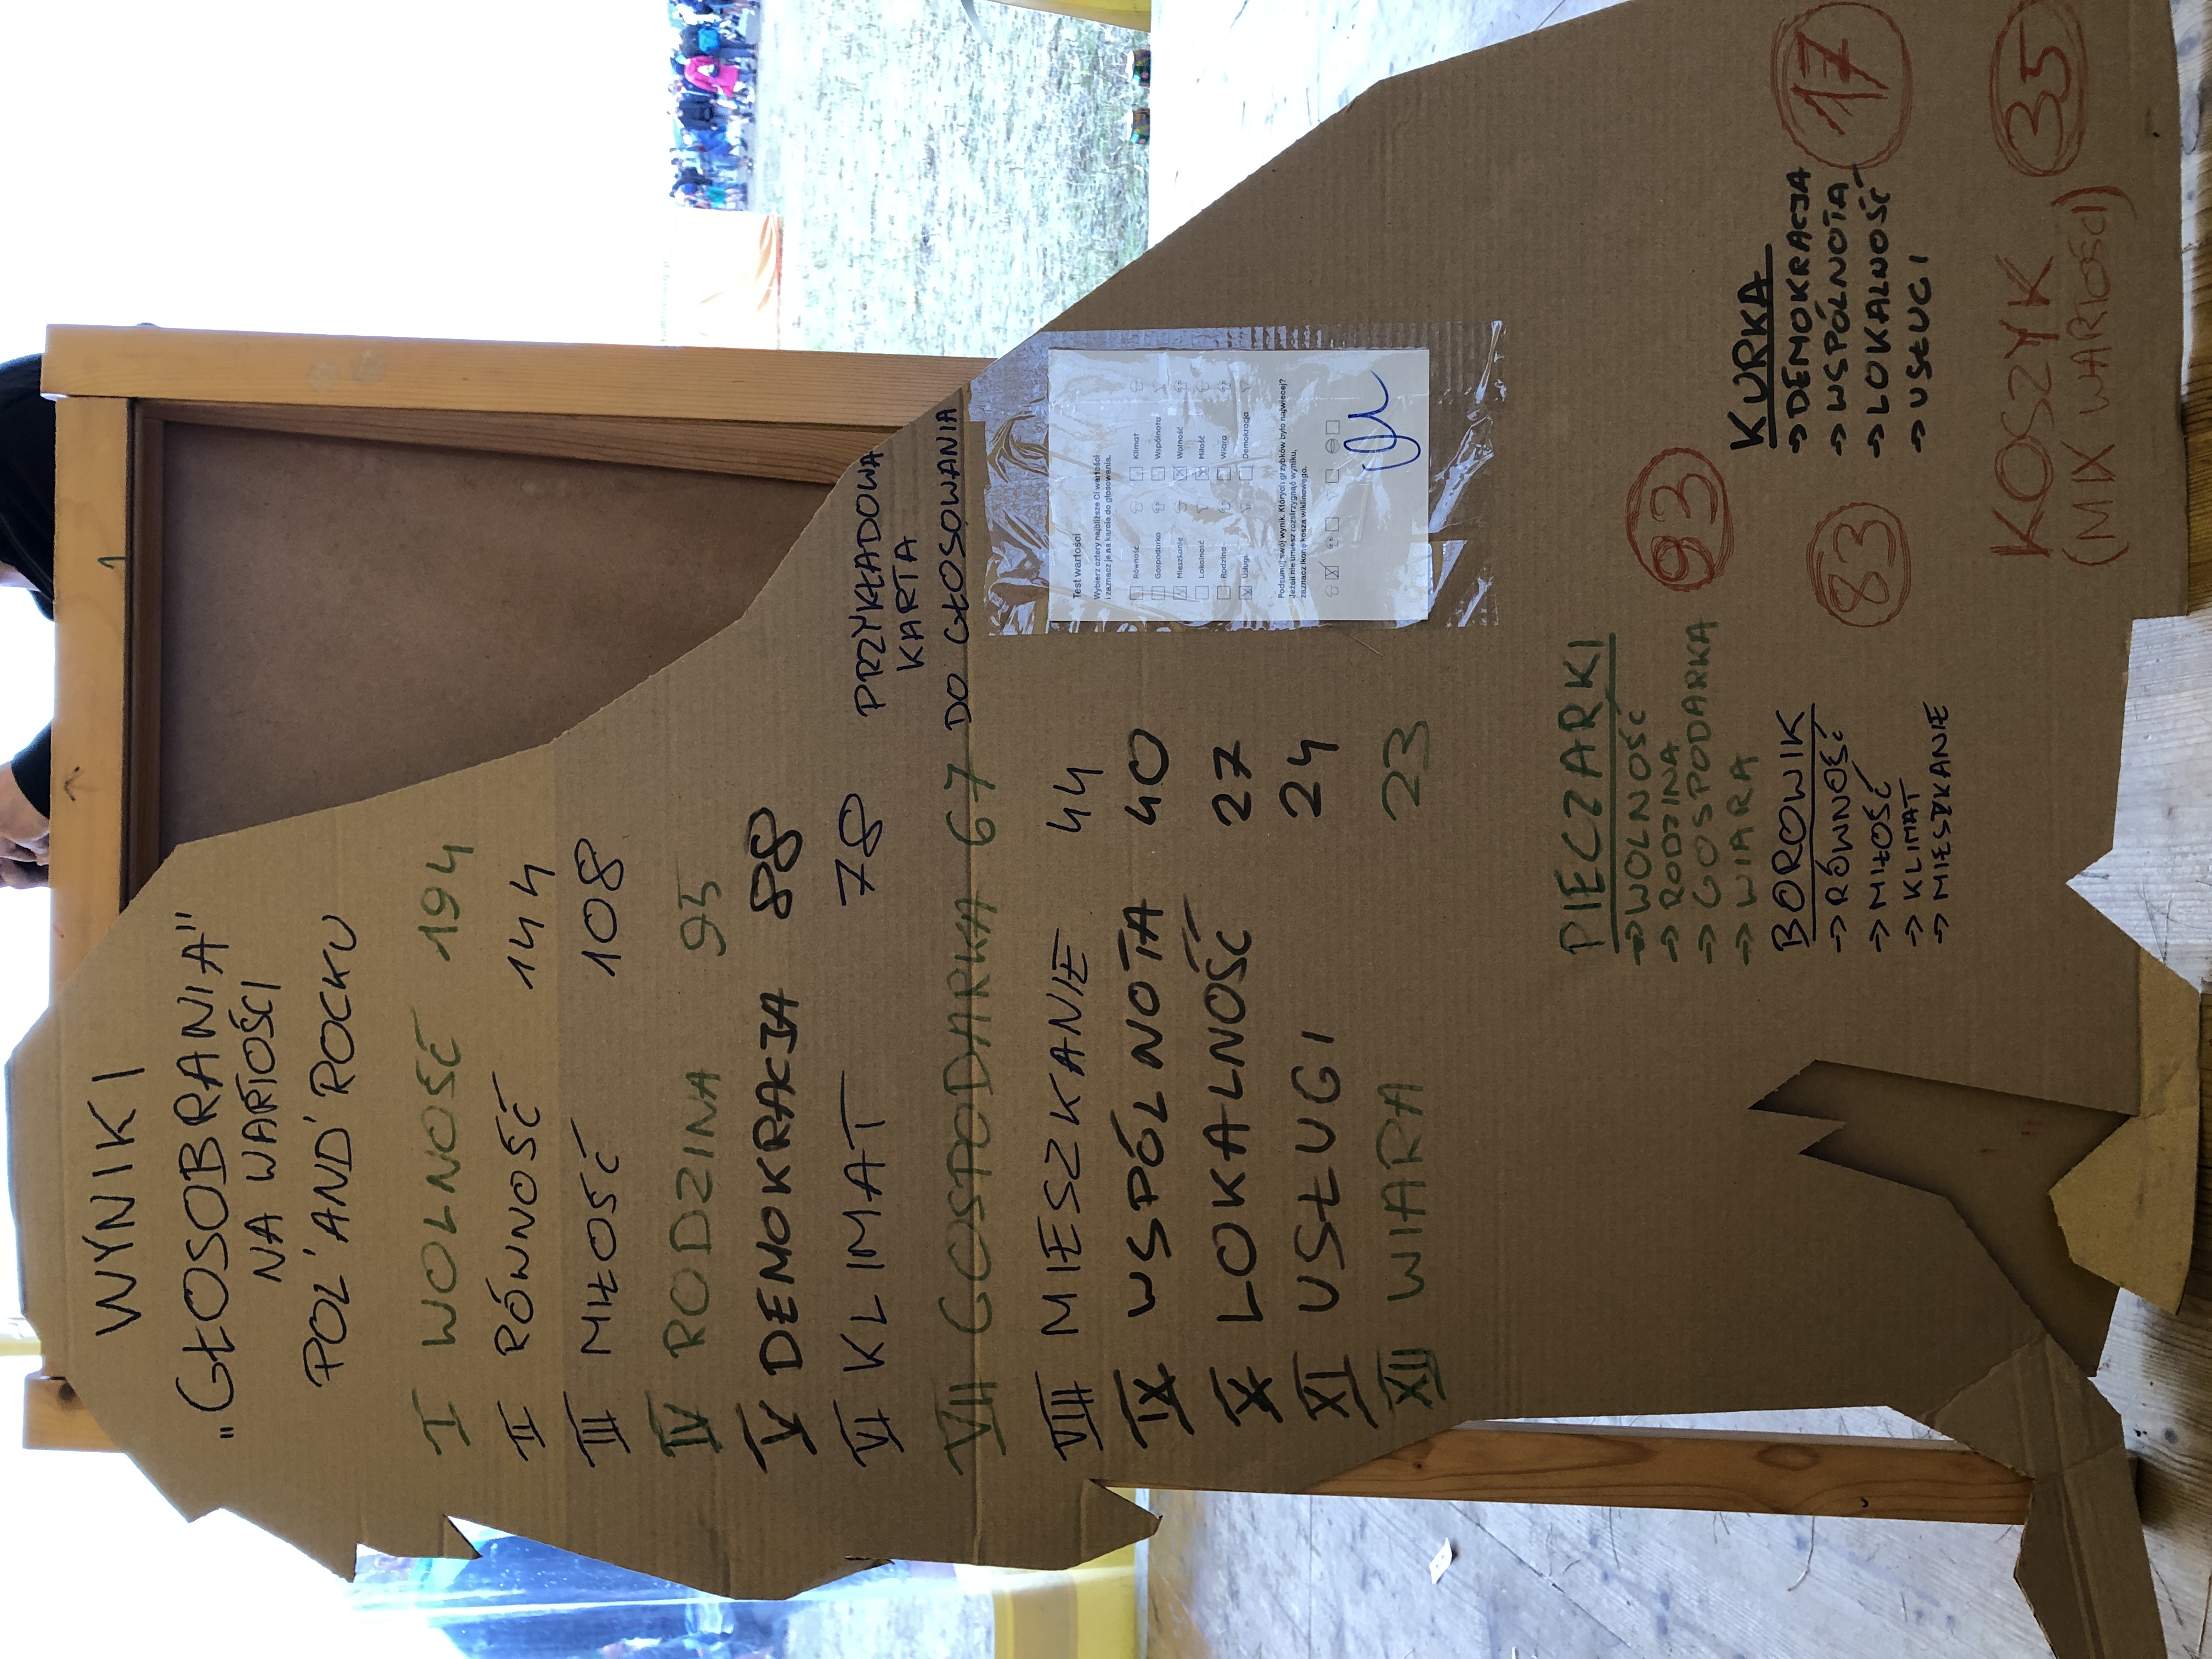 WYNIKI
„GŁOSOBRANIA"
NA WARTOŚCI
POL'AND'ROCKU
I WOLNOŚĆ 194
II RÓWNOŚĆ 144
III MIŁOŚĆ 108
IV RODZINA 95
V DEMOKRACJA 88
VI KLIMAT 78
VII GOSPODARKA 67
VIII MIESZKANIE 44
IX WSPÓLNOTA 40
X LOKALNOŚĆ 27
XI USŁUGI 24
XII WIARA 23
PRZYKŁADOWA
KARTA
DO GŁOSOWANIA
Test wartości
Wybierz cztery najbliższe Ci wartości
i zaznacz je na karcie do głosowania.
Równość Klimat
Gospodarka Wspólnota
Mieszkanie Wolność
Lokalność Miłość
Rodzina Wiara
Usługi Demokracja
Podsumuj swój wynik. Których grzybków było najwięcej?
Jeżeli nie umiesz rozstrzygnąć wyniku,
zaznacz ikonę kosza wiklinowego.
PIECZARKI 93
→ WOLNOŚĆ
→ RODZINA
→ GOSPODARKA
→ WIARA
BOROWIK 83
→ RÓWNOŚĆ
→ MIŁOŚĆ
→ KLIMAT
→ MIESZKANIE
KURKA 17
→ DEMOKRACJA
→ WSPÓLNOTA
→ LOKALNOŚĆ
→ USŁUGI
KOSZYK 35
(MIX WARTOŚCI)